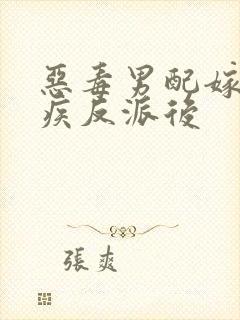 惡毒男配嫁
疾反派後
張爽